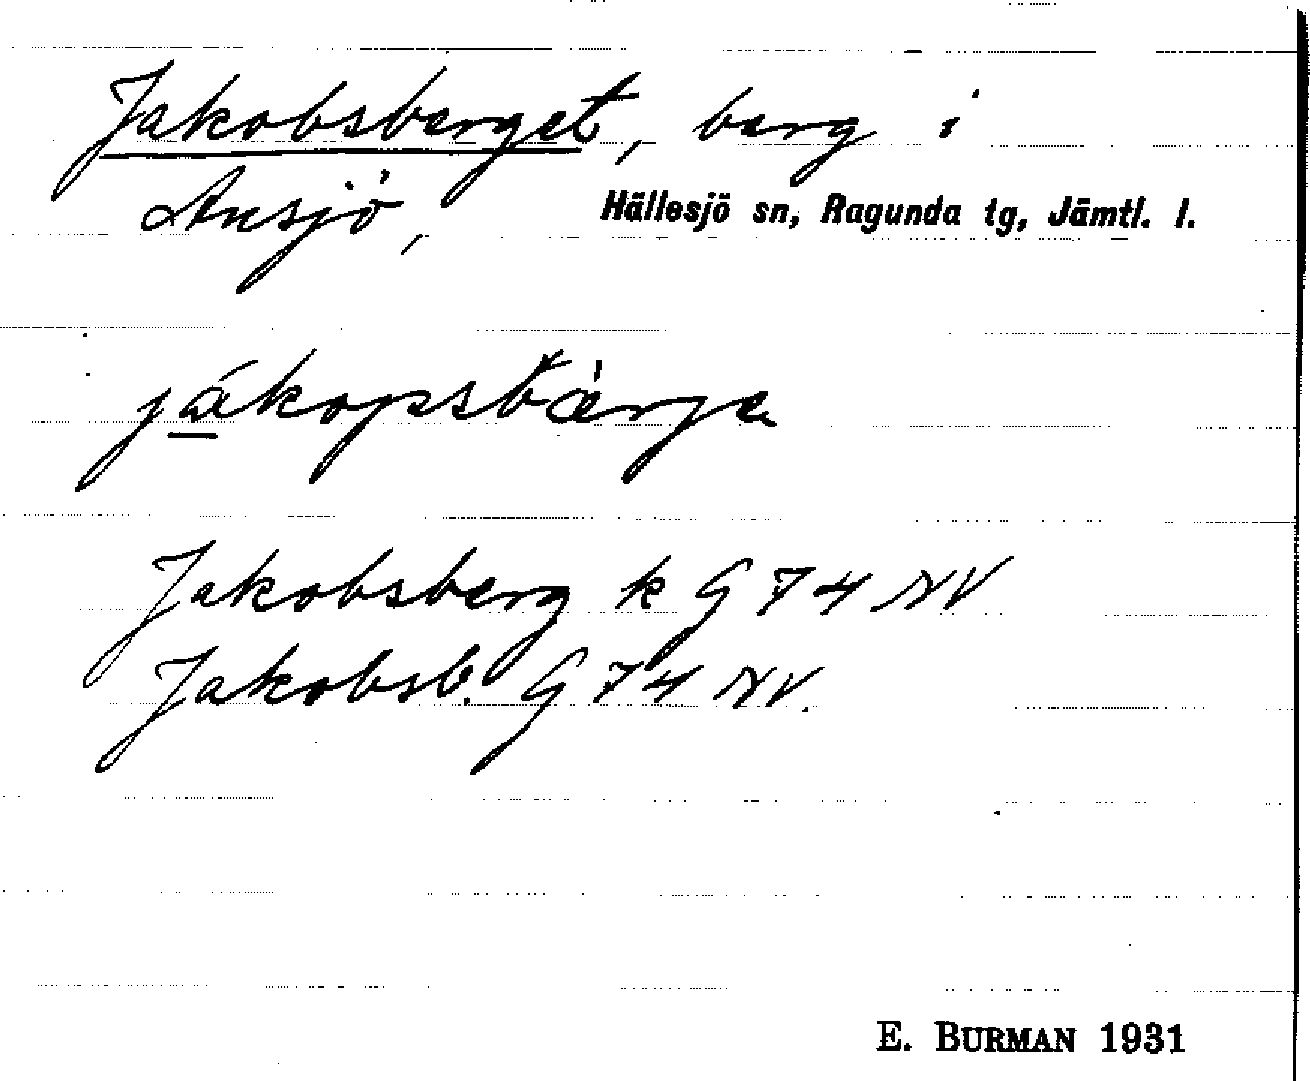 Jakobsberget, berg i
Ansjö, Hällesjö sn, Ragunda tg, Jämtl. l.
jákopsbǽrjɑ
Jakobsberg k G 74 NV
Jakobsb. G 74 NV.
E. BURMAN 1931